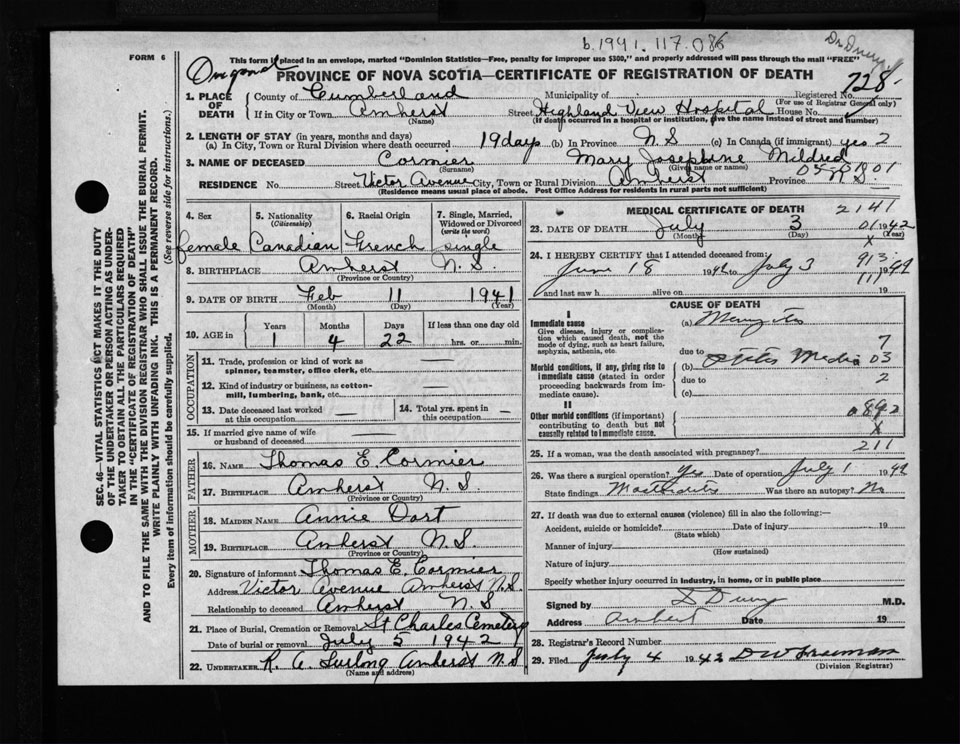 b.1941.117.086
FORM 6
Dr Drury
This form if placed in an envelope, marked "Dominion Statistics—Free, penalty for improper use $300," and properly addressed will pass through the mail "FREE"
PROVINCE OF NOVA SCOTIA—CERTIFICATE OF REGISTRATION OF DEATH
728
1. PLACE OF DEATH County of Cumberland Municipality of Registered No.
(For use of Registrar General only)
If in City or Town Amherst Street Highland View Hospital House No.
(Name) (If death occurred in a hospital or institution, give the name instead of street and number)
2. LENGTH OF STAY (in years, months and days)
(a) In City, Town or Rural Division where death occurred 19 days (b) In Province N S (c) In Canada (if immigrant) yes 2
3. NAME OF DECEASED Cormier Mary Josephine Mildred
(Surname) (Given name or names)
RESIDENCE No. Street Victor Avenue City, Town or Rural Division Amherst Province N S
(Residence means usual place of abode. Post Office Address for residents in rural parts not sufficient)
SEC. 46—VITAL STATISTICS ACT MAKES IT THE DUTY
OF THE UNDERTAKER OR PERSON ACTING AS UNDER-
TAKER TO OBTAIN ALL THE PARTICULARS REQUIRED
IN THE "CERTIFICATE OF REGISTRATION OF DEATH"
AND TO FILE THE SAME WITH THE DIVISION REGISTRAR WHO SHALL ISSUE THE BURIAL PERMIT.
WRITE PLAINLY WITH UNFADING INK. THIS IS A PERMANENT RECORD.
Every item of information should be carefully supplied. (See reverse side for instructions.)
4. Sex 5. Nationality (Citizenship) 6. Racial Origin 7. Single, Married, Widowed or Divorced (write the word)
female Canadian French single
8. BIRTHPLACE Amherst N.S.
(Province or Country)
9. DATE OF BIRTH Feb 11 1941
(Month) (Day) (Year)
10. AGE in Years Months Days If less than one day old
1 4 22 hrs. or min.
OCCUPATION
11. Trade, profession or kind of work as
spinner, teamster, office clerk, etc. —
12. Kind of industry or business, as cotton-
mill, lumbering, bank, etc. —
13. Date deceased last worked at this occupation — 14. Total yrs. spent in this occupation —
15. If married give name of wife
or husband of deceased —
FATHER
16. NAME Thomas E. Cormier
17. BIRTHPLACE Amherst N.S.
MOTHER
18. MAIDEN NAME Annie Dort
19. BIRTHPLACE Amherst N.S.
(Province or Country)
20. Signature of informant Thomas E. Cormier
Address Victor Avenue Amherst N.S.
Relationship to deceased Amherst N.S
21. Place of Burial, Cremation or Removal St Charles Cemetery
Date of burial or removal July 5 1942
22. UNDERTAKER R. A. Furlong Amherst N.S
(Name and address)
MEDICAL CERTIFICATE OF DEATH 2141
23. DATE OF DEATH July 3 1942
(Month) (Day) (Year)
X
24. I HEREBY CERTIFY that I attended deceased from: 913
June 18 1942 to July 3 1942
and last saw h alive on 19
CAUSE OF DEATH
I
Immediate cause (a) Meningitis
Give disease, injury or complica-
tion which caused death, not the
mode of dying, such as heart failure,
asphyxia, asthenia, etc. 7
due to
(b) Otitis Media 03
Morbid conditions, if any, giving rise to
immediate cause (stated in order
proceeding backwards from im-
mediate cause). due to 2
(c)
II
Other morbid conditions (if important)
contributing to death but not
causally related to immediate cause. 0892
X
25. If a woman, was the death associated with pregnancy? 211
26. Was there a surgical operation? Yes Date of operation July 1 1942
State findings Mastoiditis Was there an autopsy? No
27. If death was due to external causes (violence) fill in also the following:—
Accident, suicide or homicide? Date of injury 19
(State which)
Manner of injury
(How sustained)
Nature of injury
Specify whether injury occurred in industry, in home, or in public place
Signed by D Drury M.D.
Address Amherst Date 19
28. Registrar's Record Number
29. Filed July 4 1942 D W Freeman
(Division Registrar)